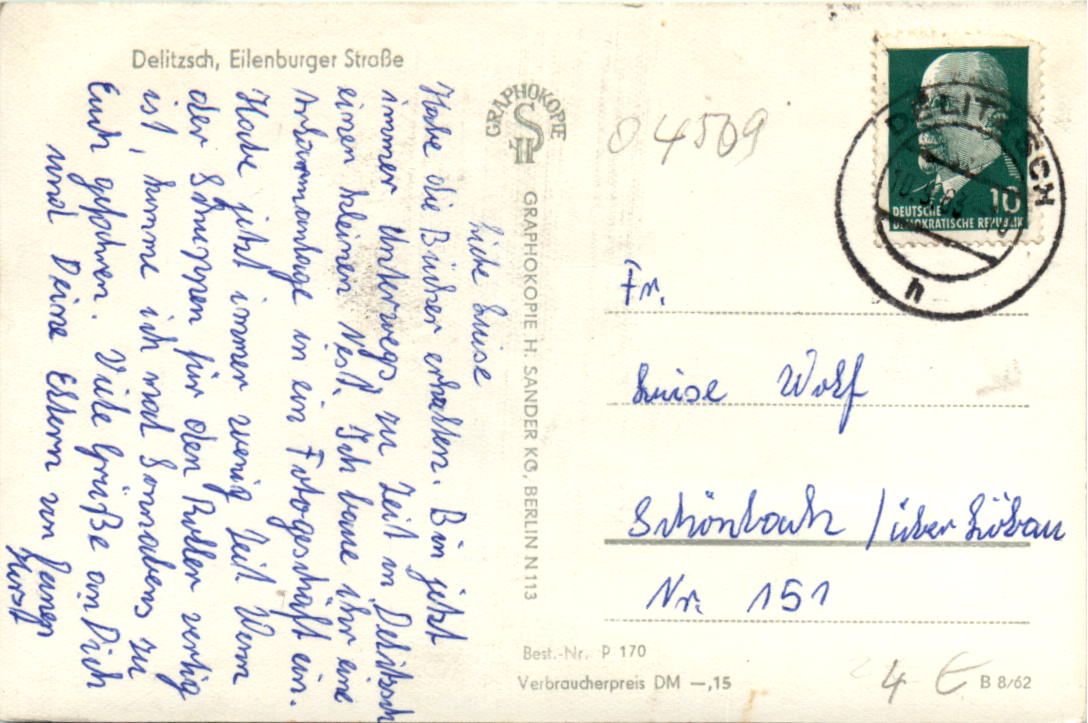 Delitzsch, Eilenburger Straße
Liebe Luise
Habe die Bücher erhalten. Bin jetzt
immer Unterwegs, zu Zeit in Delitzsch
einen kleinen Nest. Ich baue ihr eine
Alarmanlage in ein Fotogeschäft ein.
Habe jetzt immer wenig Zeit Wenn
der Schuppen für den Roller vertig
ist, komme ich mal Sonnabens zu
Euch gefahren. Viele Grüße an Dich
und Deine Eltern von Deinen
Horst
GRAPHOKOPIE
HS
GRAPHOKOPIE H. SANDER KG, BERLIN N 113
04509
DELITZSCH
10
DEUTSCHE
DEMOKRATISCHE REPUBLIK
h
Fr.
Luise Wolf
Schönbach / über Löbau
Nr. 151
Best.-Nr. P 170
Verbraucherpreis DM —,15
4 €
B 8/62